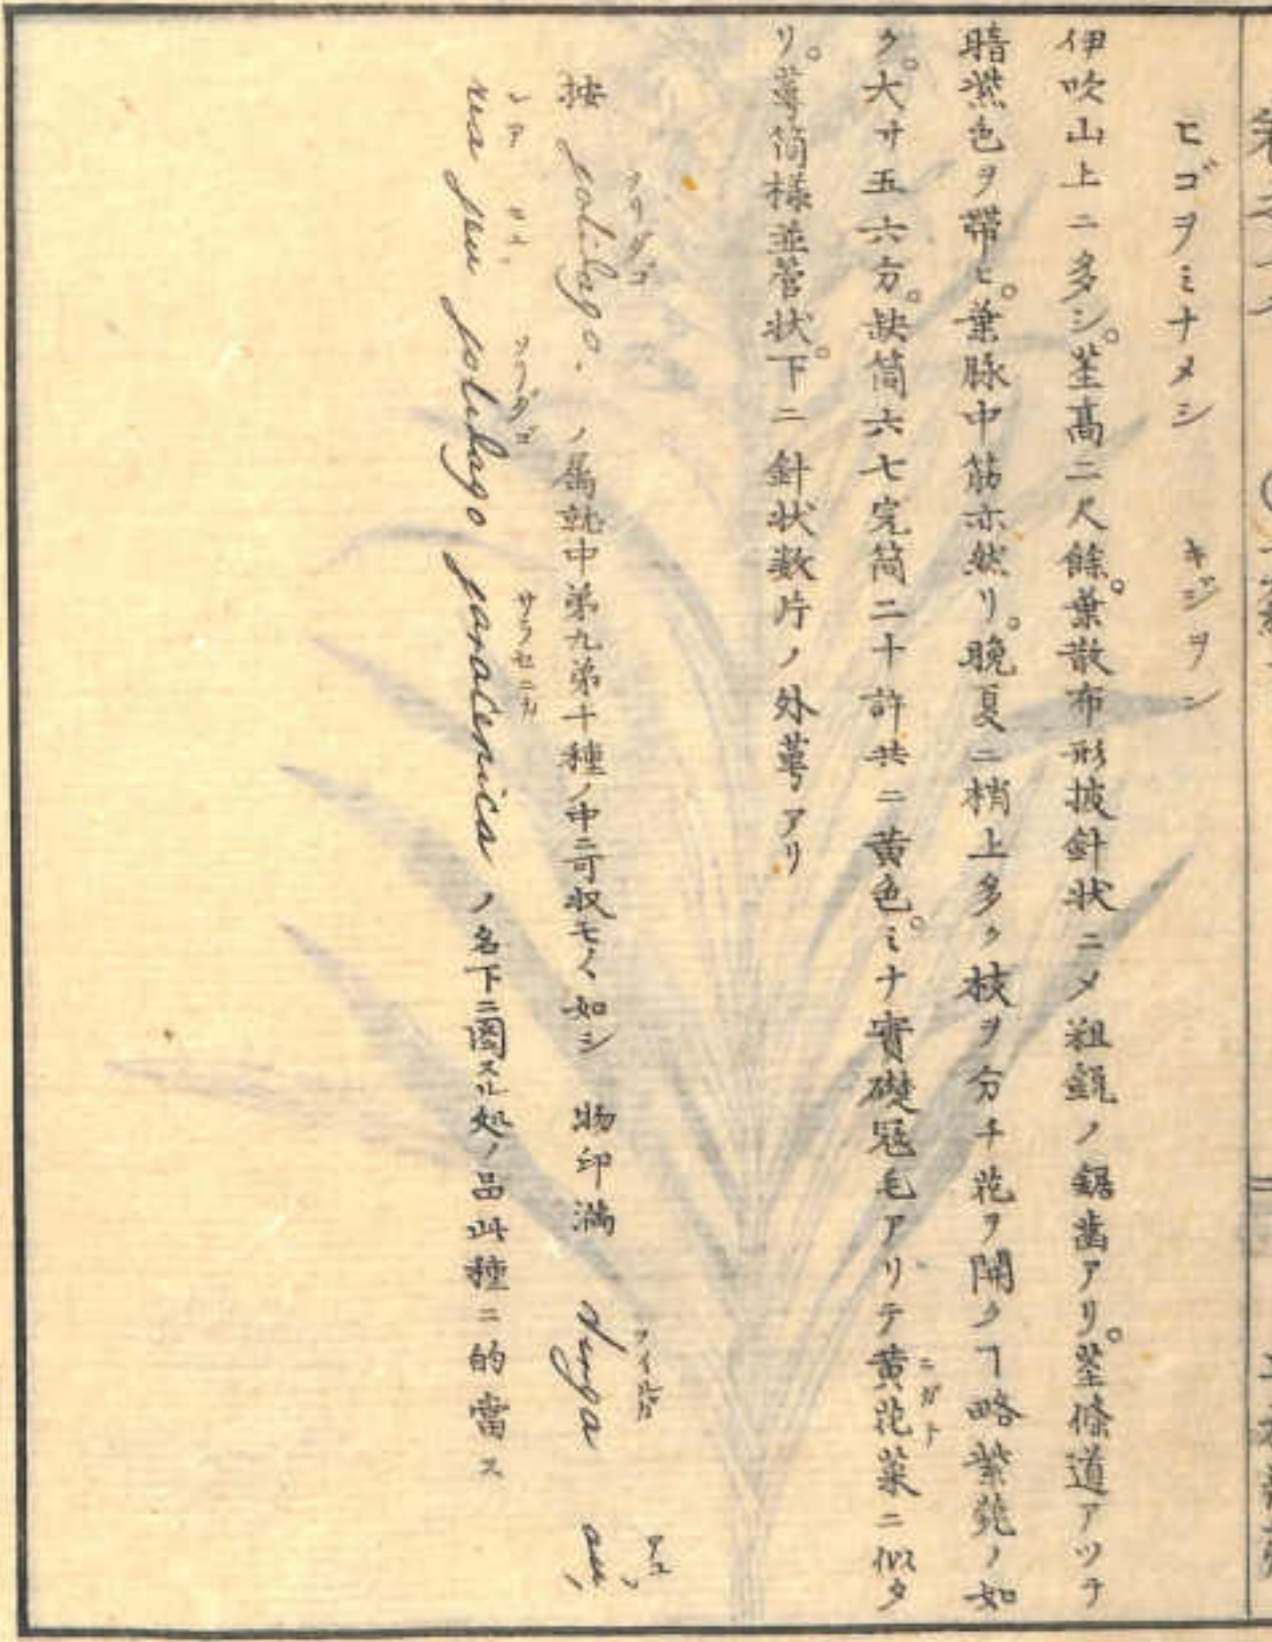 ヒゴヲミナメシ　キジヲン
伊吹山上ニ多シ。茎高二尺餘。葉散布形披針状ニメ粗鋭ノ鋸歯アリ。茎條道アツテ
暗紫色ヲ帶ヒ。葉脉中筋亦然リ。晩夏ニ梢上多ク枝ヲ分チ花ヲ開クヿ略紫菀ノ如
ク。大サ五六分。缺筒六七完筒二十許共ニ黄色。ミナ實礎冠毛アリテ黄花菜ニ似タ
リ。萼筒様並管状。下ニ針状数片ノ外萼アリ
按 solidago. ノ属就中第九弟十種ノ中ニ可収モノヽ如シ 物印満 virga au,
rea seu solidago saracenica ノ名下ニ圖スル処ノ品此種ニ的當ス